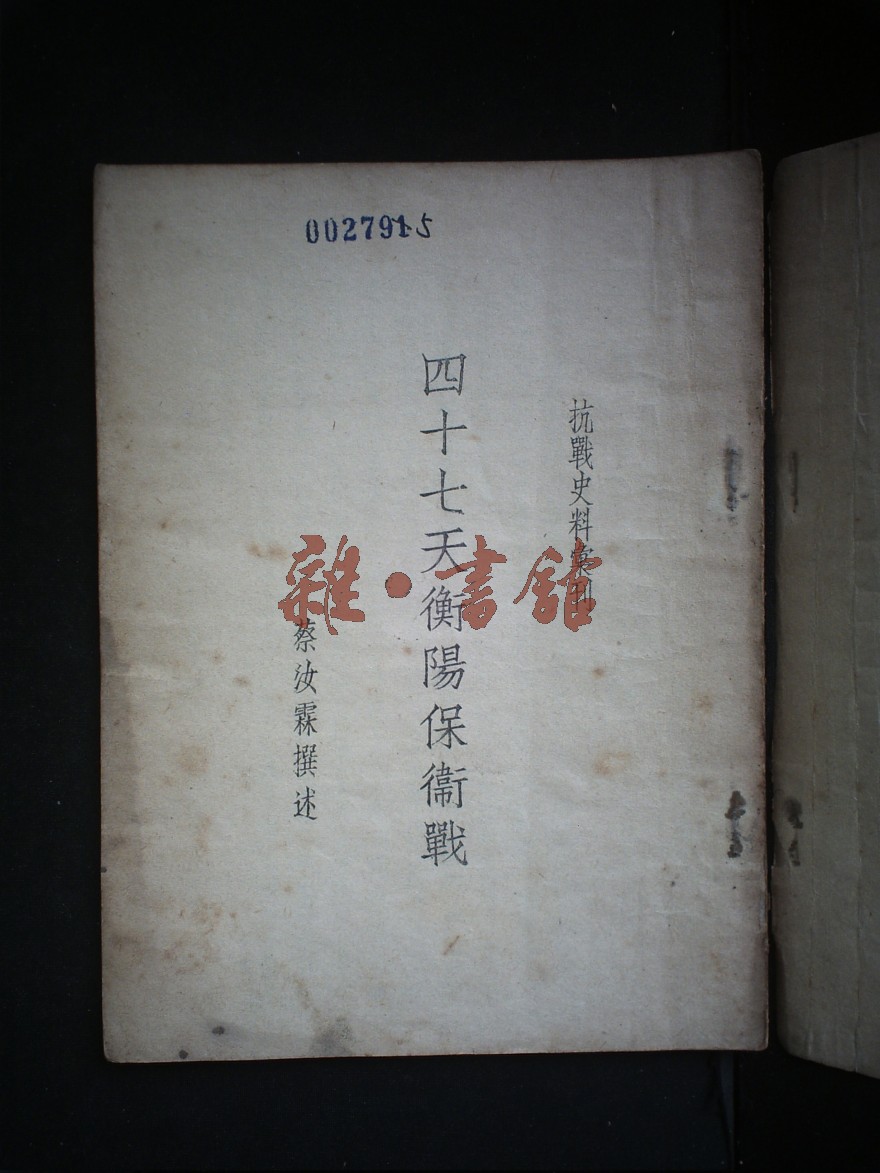 0027915
抗戰史料彙刊
四十七天衡陽保衞戰
蔡汝霖撰述
雜·書館